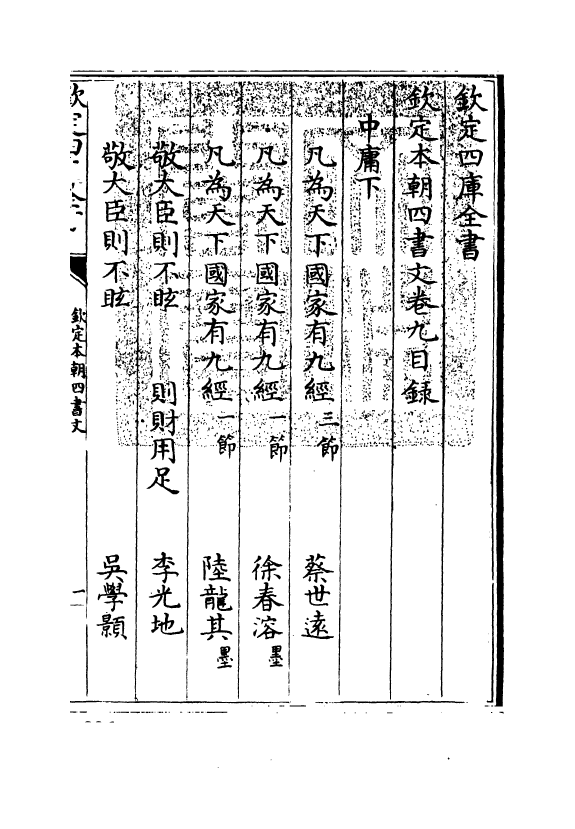 欽定四庫全書
欽定本朝四書文卷九目錄
中庸下
凡為天下國家有九經 三節 蔡世遠
凡為天下國家有九經 一節 徐春溶 墨
凡為天下國家有九經 一節 陸龍其 墨
敬大臣則不眩 則財用足 李光地
敬大臣則不眩 吳學顥
欽定四庫全書
欽定本朝四書文
一